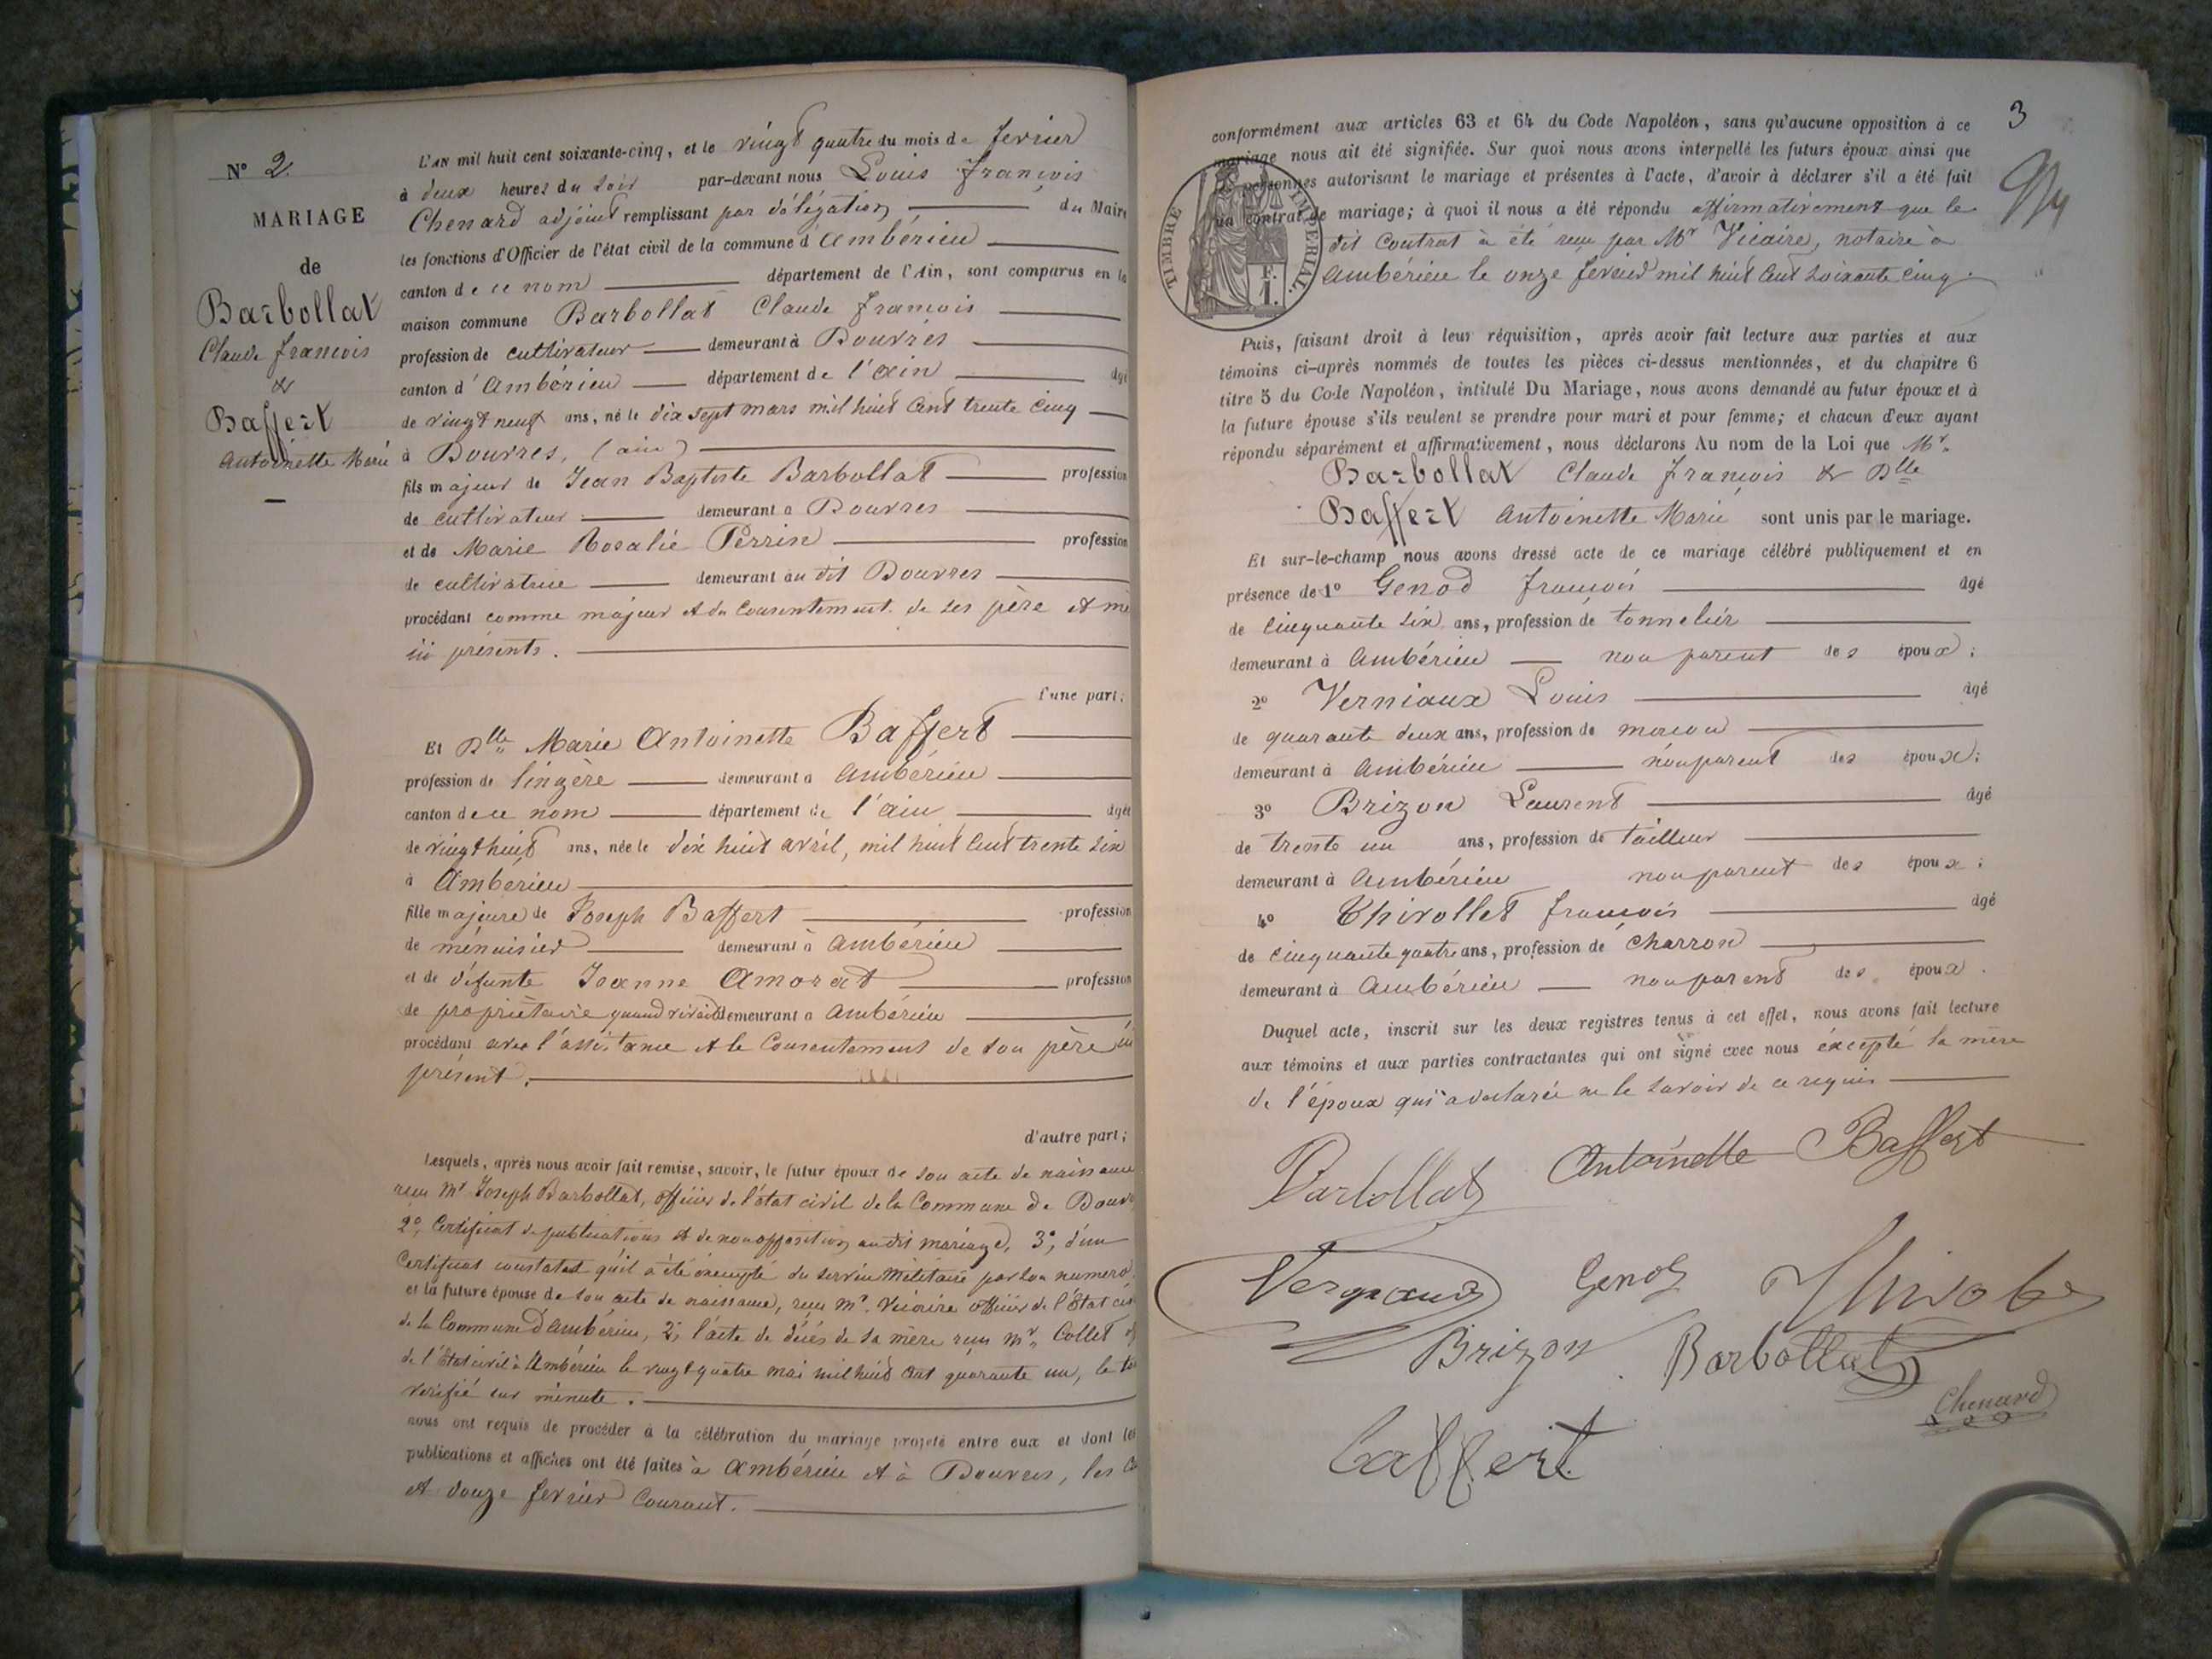 N° 2
MARIAGE
de
Barbollat
Claude francois
&
Baffert
Antoinette Marie
L'AN mil huit cent soixante-cinq, et le vingt quatre du mois de fevrier
à deux heures du soir par-devant nous Louis françois
Chenard adjoint remplissant par délégation du Maire
les fonctions d'Officier de l'état civil de la commune d'Ambérieu
canton de ce nom département de l'Ain, sont comparus en la
maison commune Barbollat Claude francois
profession de cultivateur demeurant à Douvres
canton d'Ambérieu département de l'ain âgé
de vingt neuf ans, né le dix sept mars mil huit cent trente cinq
à Douvres, (ain)
fils majeur de Jean Baptiste Barbollat profession
de cultivateur demeurant à Douvres
et de Marie Rosalie Perrin profession
de cultivatrice demeurant au dit Douvres
procédant comme majeur et du consentement de ses père et mè
ici présents.
d'une part;
Et Dlle Marie Antoinette Baffert
profession de lingère demeurant à Ambérieu
canton de ce nom département de l'ain âgée
de vingt huit ans, née le dix huit avril, mil huit cent trente six
à Ambérieu
fille majeure de Joseph Baffert profession
de menuisier demeurant à Ambérieu
et de défunte Jeanne Amorat profession
de propriétaire quand vivait demeurant à Ambérieu
procédant avec l'assistance et le consentement de son père ici
présent.
d'autre part;
Lesquels, après nous avoir fait remise, savoir, le futur époux de son acte de naissance
reçu Mr Joseph Barbollat, officier de l'état civil de la Commune de Douvres
2°, Certificat de publications et de non opposition au dit mariage, 3°, d'un
Certificat constatant qu'il a été exempté du service militaire par son numéro.
et la future épouse de son acte de naissance, reçu Mr. Vicaire officier de l'état civ
de la Commune d'Ambérieu, 2°, l'acte de décès de sa mère reçu Mr Collet off
de l'état civil à Ambérieu le vingt quatre mai mil huit cent quarante un, le to
vérifié sur minute.
nous ont requis de procéder à la célébration du mariage projeté entre eux et dont les
publications et affiches ont été faites à Ambérieu et à Douvres, les
et douze fevrier courant.
3
conformément aux articles 63 et 64 du Code Napoléon, sans qu'aucune opposition à ce
mariage nous ait été signifiée. Sur quoi nous avons interpellé les futurs époux ainsi que
les personnes autorisant le mariage et présentes à l'acte, d'avoir à déclarer s'il a été fait
un contrat de mariage; à quoi il nous a été répondu affirmativement que le
dit Contrat à été reçu par Mr Vicaire, notaire à
Ambérieu le onze fevrier mil huit cent soixante cinq.
TIMBRE IMPERIAL.
F.
1.
Puis, faisant droit à leur réquisition, après avoir fait lecture aux parties et aux
témoins ci-après nommés de toutes les pièces ci-dessus mentionnées, et du chapitre 6
titre 5 du Code Napoléon, intitulé Du Mariage, nous avons demandé au futur époux et à
la future épouse s'ils veulent se prendre pour mari et pour femme; et chacun d'eux ayant
répondu séparément et affirmativement, nous déclarons Au nom de la Loi que Mr.
Barbollat Claude françois & Dlle
Baffert Antoinette Marie sont unis par le mariage.
Et sur-le-champ nous avons dressé acte de ce mariage célébré publiquement et en
présence de 1° Genod françois âgé
de cinquante six ans, profession de tonnelier
demeurant à Ambérieu non parent des époux;
2° Verniaux Louis âgé
de quarante deux ans, profession de macon
demeurant à Ambérieu non parent des époux;
3° Brizon Laurent âgé
de trente un ans, profession de tailleur
demeurant à Ambérieu non parent des époux;
4° Thivollet françois âgé
de cinquante quatre ans, profession de charron
demeurant à Ambérieu non parent des époux.
Duquel acte, inscrit sur les deux registres tenus à cet effet, nous avons fait lecture
aux témoins et aux parties contractantes qui ont signé avec nous excepté la mère
de l'époux qui a declarée ne le savoir de ce requis
Barbollat Antoinette Baffert
Genod
Brizon Barbollat
Chenard
baffert